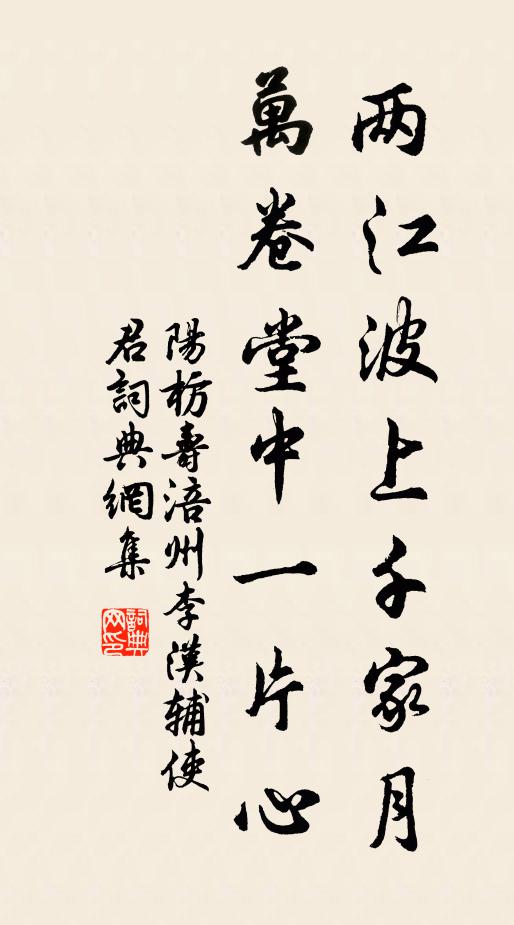 两江波上千家月
萬卷堂中一片心
陽枋壽涪州李漢輔使
君詞典網集
詞典
网印